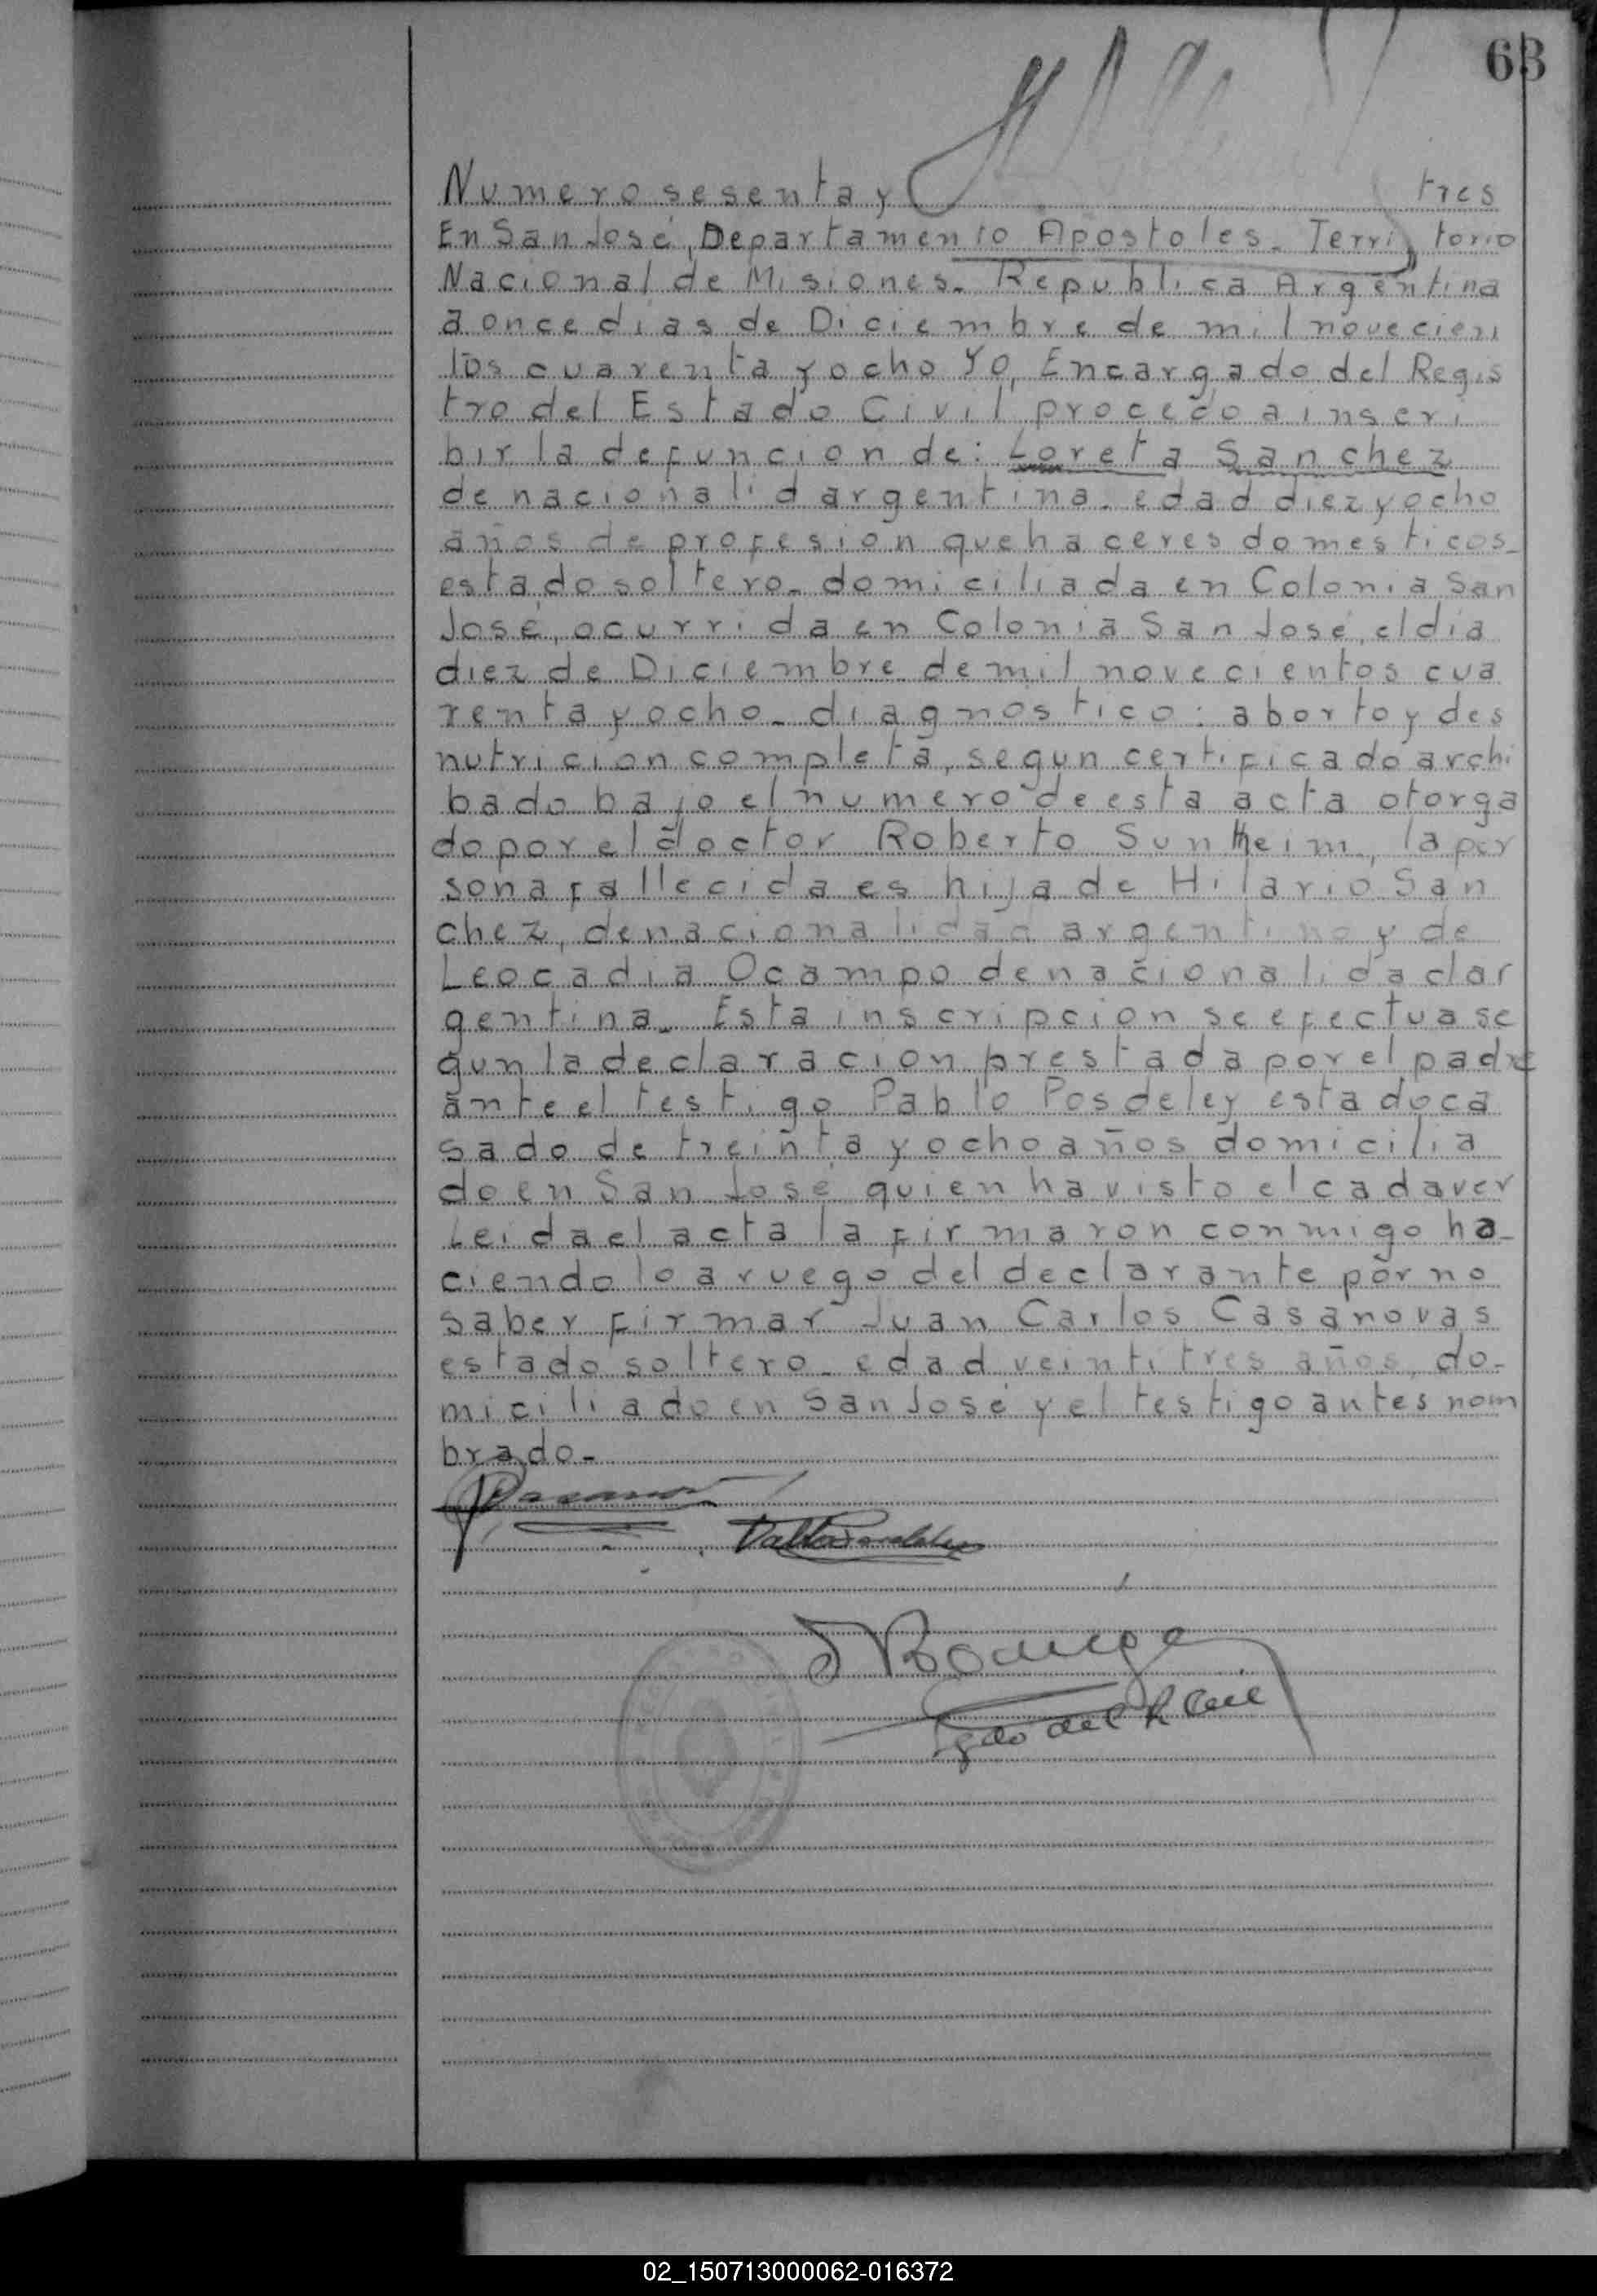 63
Numero sesenta y tres
En San José, Departamento Apostoles - Territorio
Nacional de Misiones - Republica Argentina
a once dias de Diciembre de mil novecien
tos cuarenta y ocho Yo, Encargado del Regis
tro del Estado Civil procedo a inscri
bir la defuncion de: Loreta Sanchez
de nacionalid argentina - edad diez y ocho
años de profesion quehaceres domesticos -
estado soltero - domiciliada en Colonia San
José, ocurrida en Colonia San José, el dia
diez de Diciembre de mil novecientos cua
renta y ocho - diagnostico: aborto y des
nutricion completa, segun certificado archi
bado bajo el numero de esta acta otorga
do por el doctor Roberto Suntheim, la per
sona fallecida es hija de Hilario San
chez, de nacionalidad argentino y de
Leocadia Ocampo de nacionalidad ar
gentina - Esta inscripcion se efectua se
gun la declaracion prestada por el padre
ante el testigo Pablo Posdeley estado ca
sado de treinta y ocho años domicilia
do en San José quien ha visto el cadaver
Leida el acta la firmaron conmigo ha-
ciendolo a ruego del declarante por no
saber firmar Juan Carlos Casanovas
estado soltero - edad veintitres años, do-
miciliado en San José y el testigo antes nom
brado -
02_150713000062-016372